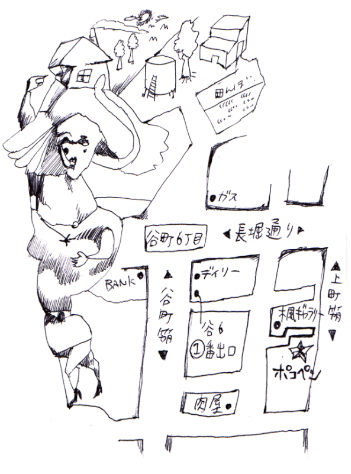 田んぼ
ガス
谷町6丁目
◀長堀通り▶
BANK
▲谷町筋▼
デイリー
谷6
①番出口
肉屋
▲上町筋▼
楓ギャラリー
ポコペン